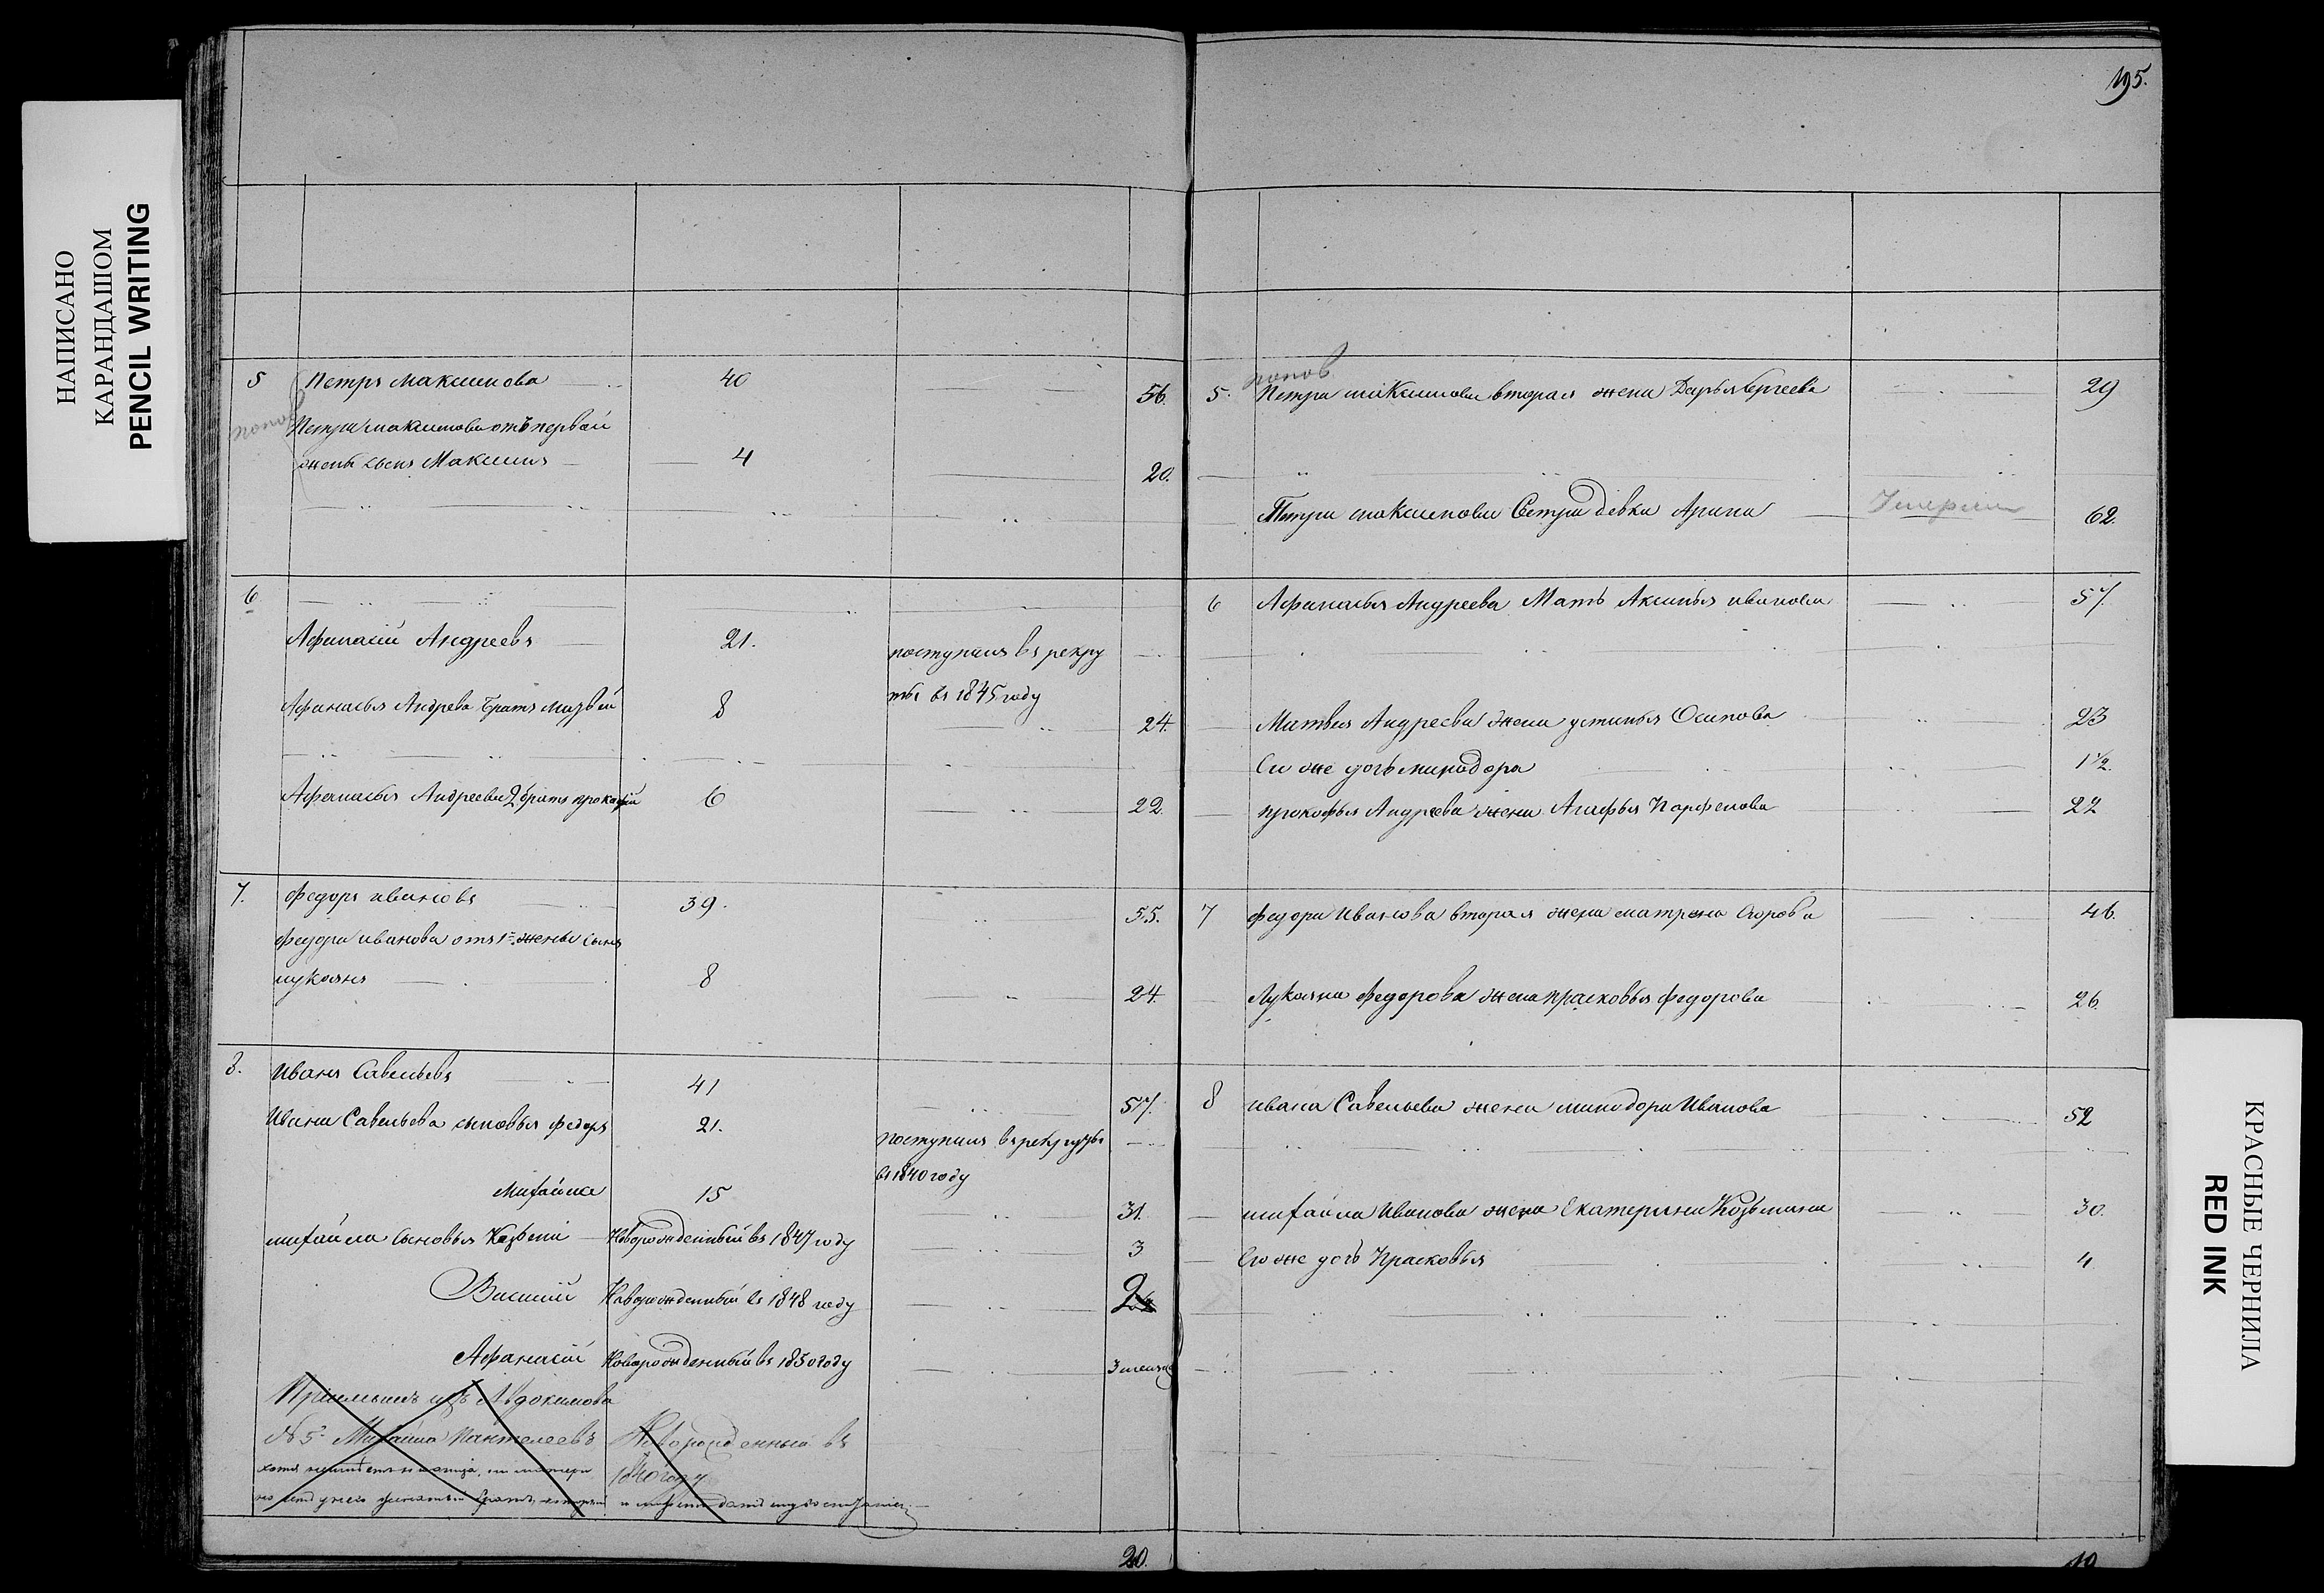 НАПИСАНО
КАРАНДАШОМ
PENCIL WRITING
195.
5 Петръ Максимовъ 40 56.
попов
Петра Максимова отъ первой
жены сынъ Максимъ 4 20.
6 Афанасій Андреевъ 21. поступилъ въ рекру
ты въ 1845 году
Афанасья Андрева братъ Матвѣй 8 24.
Афанасья Андреева 2 братъ прокофій 6 22.
7. Федоръ ивановъ 39. 55.
Федора иванова отъ 1й жены сынъ
лукоянъ 8 24.
8. Иванъ Савельевъ 41 57.
Ивана Савельева сыновья федоръ 21. поступилъ въ рекруты
въ 1840 году
Михайла 15 31.
михайла сыновья Козьма Новорожденный въ 1847 году 3
Василій Новорожденный въ 1848 году 2
Афанасій Новорожденный въ 1850 году 3 месяца
Пріемышъ изъ Авдокимова
№ 5 Михаила Пантелеевъ Новорожденный въ
1840 году
20.
попов
5. Петра максимова вторая жена Дарья Сергеева 29
Петра максимова Сестра девка Арина Умерла 62.
6 Афанасья Андреева Мать Аксинья иванова 57.
Матвея Андреева жена устинья Осипова 23
Ею же дочь минодора 1 1/2.
прокофья Андреева жена Агафья Парфенова 22
7 федора Иванова вторая жена матрена Егорова 46.
Лукояна федорова жена прасковья федорова 26.
8 ивана Савельева жена минодора Иванова 52
михайла Иванова жена Екатерина Козьмина 30.
Ею же дочь Прасковья 4
10
КРАСНЫЕ ЧЕРНИЛА
RED INK